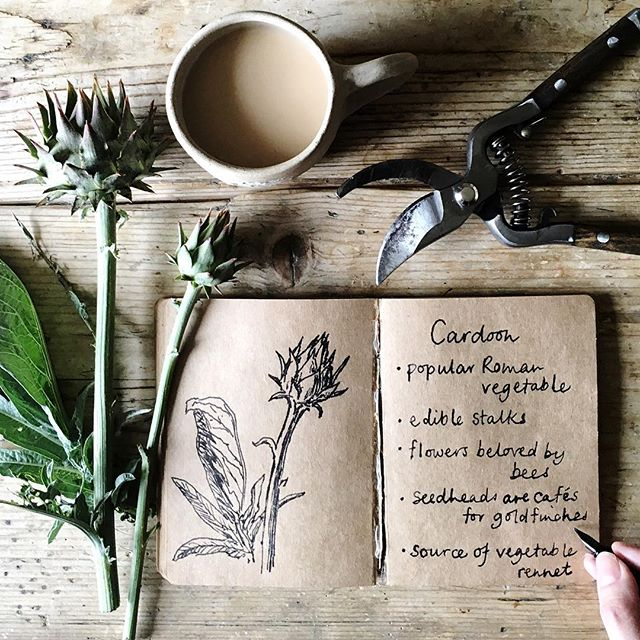 Cardoon
• popular Roman
vegetable
• edible stalks
• flowers beloved by
bees
• seedheads are cafés
for goldfinches
• source of vegetable
rennet